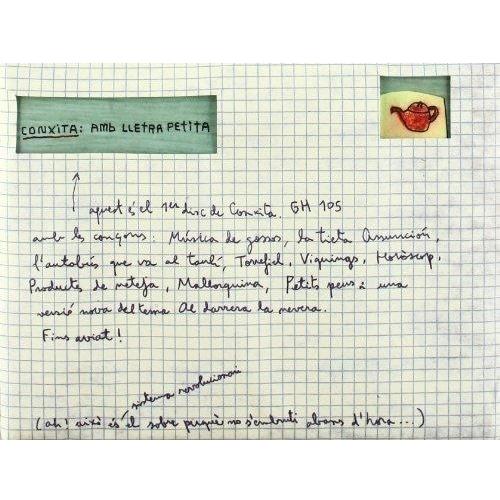 CONXITA: AMB LLETRA PETITA
aquest és el 1er disc de Conxita. GH 105
amb les cançons: Música de gossos, la tieta Assumpció,
l'autobús que va al tard, Torrefiel, Viquings, Horòscop,
Productes de neteja, Mallorquina, Petits peus i una
versió nova del tema Al darrera la nevera.
Fins aviat!
sistema revolucionari
(ah! això és el sobre perquè no s'embruti abans d'hora...)